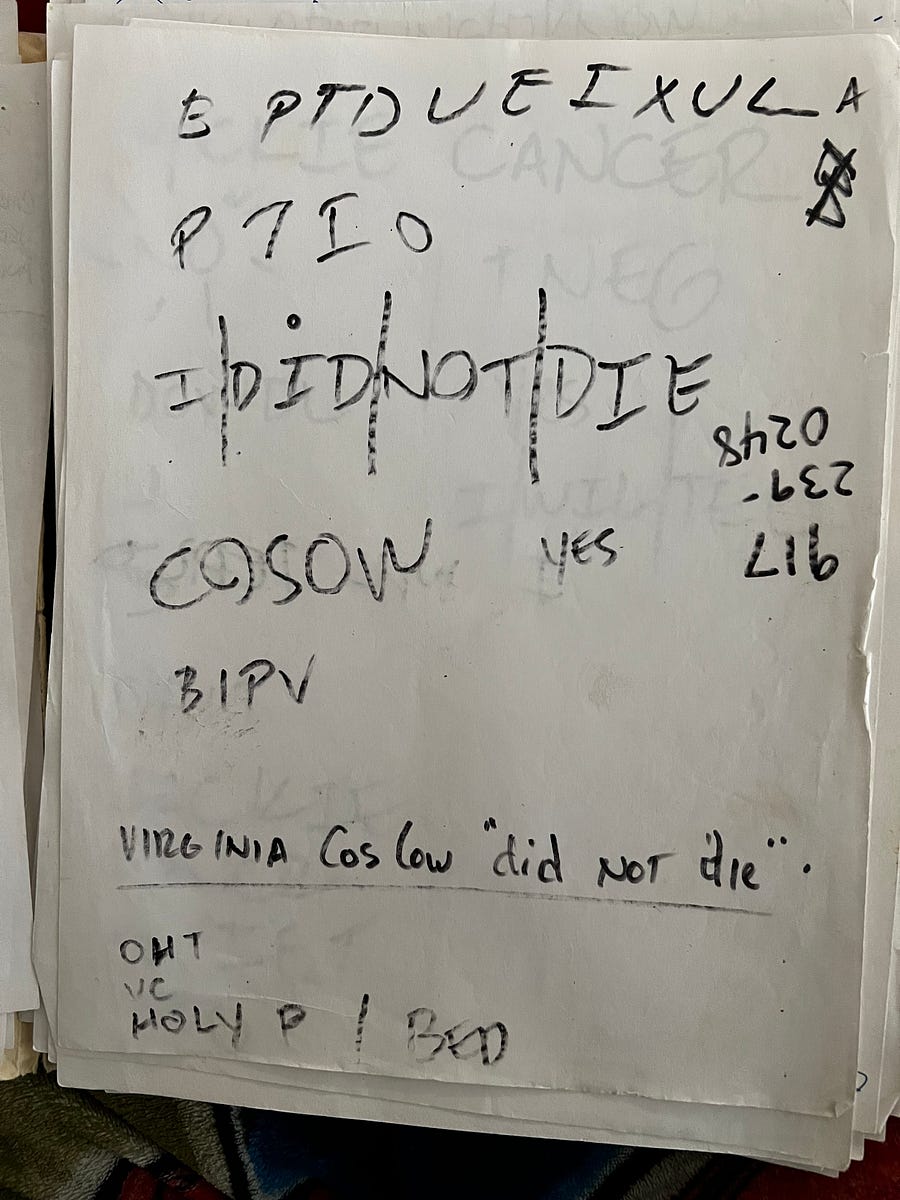 E PTDUEIXULA
PTIO
I|DID|NOT|DIE
COSOW YES
917
239-
0248
BIPV
VIRGINIA Coslow "did NOT die".
OHT
VC
HOLY P / BED
CANCER
NEG